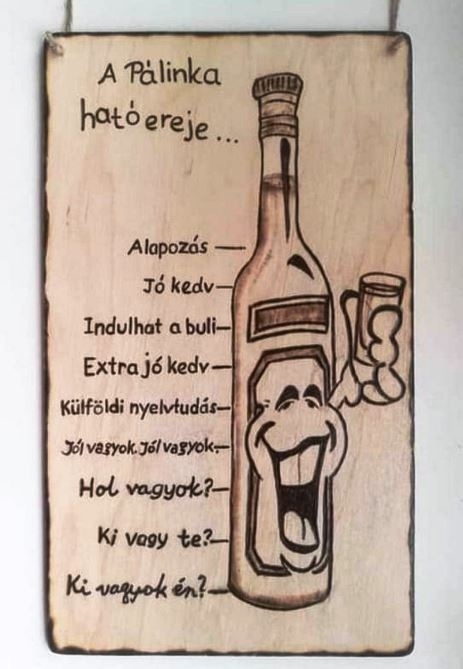 A Pálinka
hatóereje...
Alapozás
Jó kedv
Indulhat a buli
Extra jó kedv
Külföldi nyelvtudás
Jól vagyok. Jól vagyok.
Hol vagyok?
Ki vagy te?
Ki vagyok én?